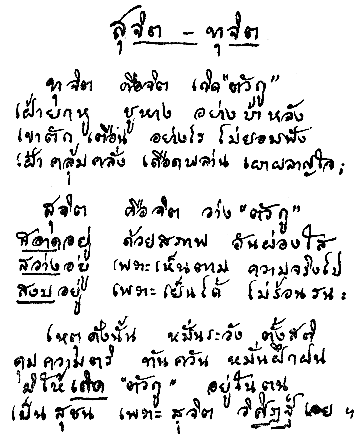 สุจิต - ทุจิต
ทุจิต คือจิต เกิด "ตัวกู"
เฝ้ายกหู ชูหาง อย่างบ้าหลัง
เขาตักเตือน อย่างไร ไม่ยอมฟัง
เฝ้าคลุ้มคลั่ง เดือดพล่าน เผาผลาญใจ ฯ
สุจิต คือจิต ว่าง "ตัวกู"
สอาดอยู่ ด้วยสภาพ อันผ่องใส
สว่างอยู่ เพราะเห็นตาม ความจริงไป
สงบอยู่ เพราะเย็นได้ ไม่ร้อนรน ฯ
เหตุดังนั้น หมั่นระวัง ตั้งสติ
คุมความตริ ทันควัน หมั่นฝึกฝน
มิให้เกิด "ตัวกู" อยู่ในตน
เป็น สุชน เพราะ สุจิต วิศิฏฐ์ เอย ฯ